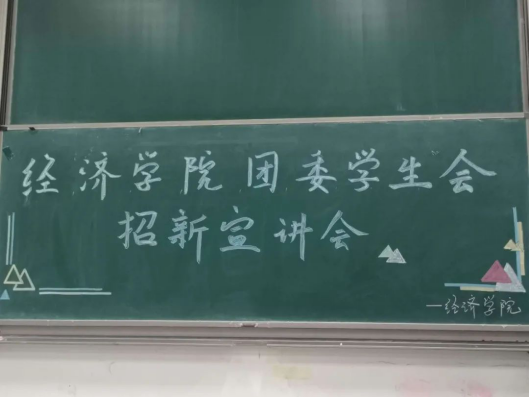 经济学院团委学生会
招新宣讲会
—经济学院